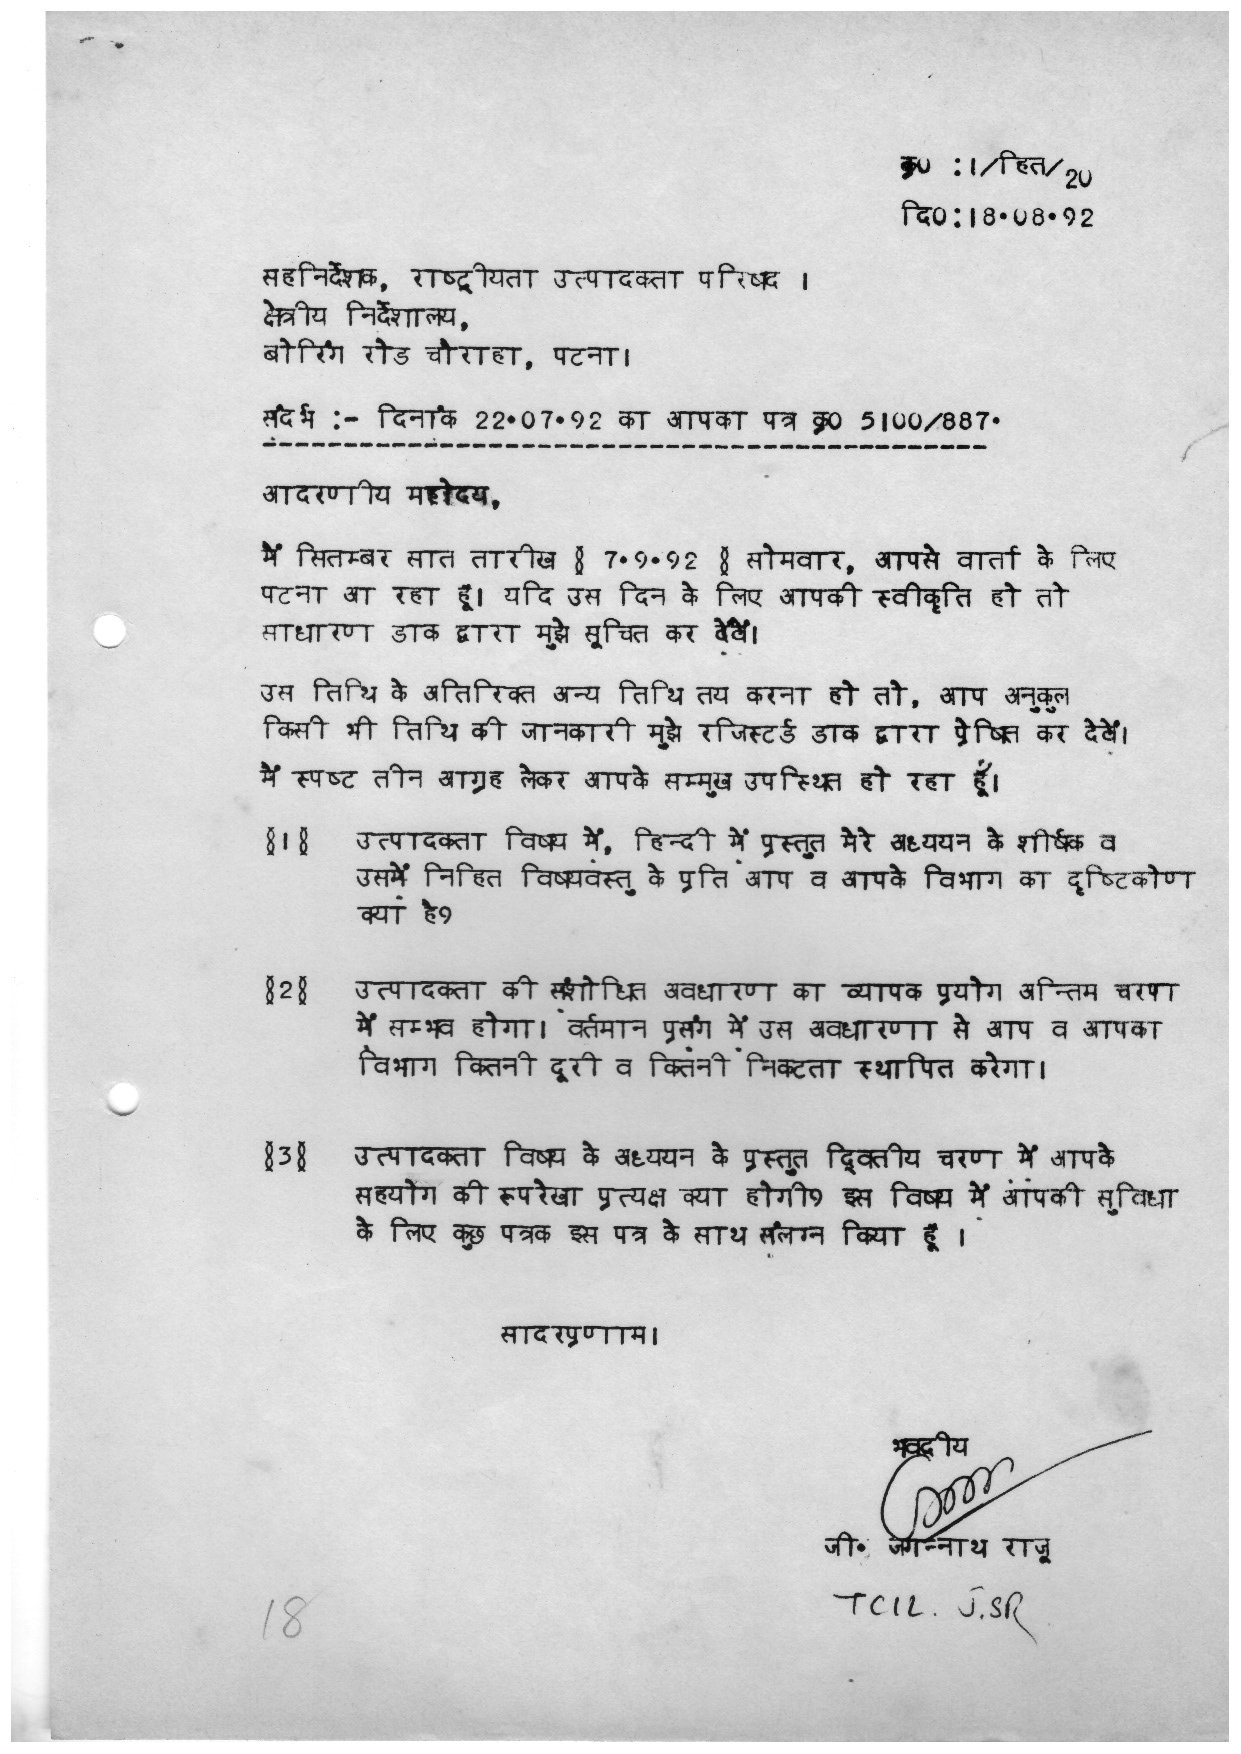 क्र0 :1/हित/20
दि0:18.08.92
सहनिर्देशक, राष्ट्रीयता उत्पादकता परिषद ।
क्षेत्रीय निर्देशालय,
बोरिंग रोड चौराहा, पटना।
संदर्भ :- दिनांक 22.07.92 का आपका पत्र क्र0 5100/887.
आदरणीय महोदय,
मैं सितम्बर सात तारीख § 7.9.92 § सोमवार, आपसे वार्ता के लिए
पटना आ रहा हूँ। यदि उस दिन के लिए आपकी स्वीकृति हो तो
साधारण डाक द्वारा मुझे सूचित कर देवें।
उस तिथि के अतिरिक्त अन्य तिथि तय करना हो तो, आप अनुकुल
किसी भी तिथि की जानकारी मुझे रजिस्टर्ड डाक द्वारा प्रेषित कर देवें।
मैं स्पष्ट तीन आग्रह लेकर आपके सम्मुख उपस्थित हो रहा हूँ।
§1§ उत्पादकता विषय में, हिन्दी में प्रस्तुत मेरे अध्ययन के शीर्षक व
उसमें निहित विषयवस्तु के प्रति आप व आपके विभाग का दृष्टिकोण
क्या है?
§2§ उत्पादकता की संशोधित अवधारण का व्यापक प्रयोग अन्तिम चरण
में सम्भव होगा। वर्तमान प्रसंग में उस अवधारणा से आप व आपका
विभाग कितनी दूरी व कितनी निकटता स्थापित करेगा।
§3§ उत्पादकता विषय के अध्ययन के प्रस्तुत द्वितीय चरण में आपके
सहयोग की रूपरेखा प्रत्यक्ष क्या होगी? इस विषय में आपकी सुविधा
के लिए कुछ पत्रक इस पत्र के साथ संलग्न किया हूँ ।
सादरप्रणाम।
भवदीय
जी. जगन्नाथ राजू
TCIL. J.SR
18